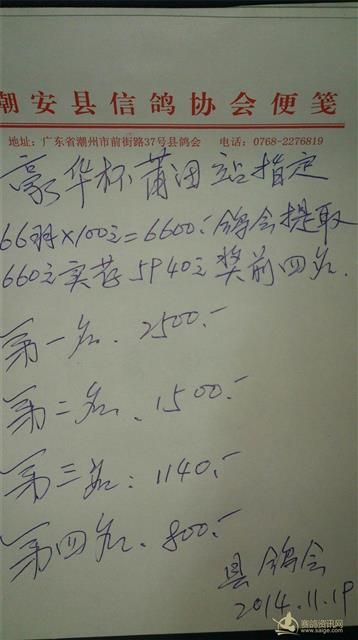 潮安县信鸽协会便笺
地址:广东省潮州市前街路37号县鸽会 电话:0768-2276819
豪华杯莆田站指定
66羽×100元=6600.-鸽会提取
660元实存5940元奖前四名.
第一名.2500.-
第二名.1500.-
第三名:1140.-
第四名.800.-
县鸽会
2014.11.19
赛鸽资讯网
www.saige.com